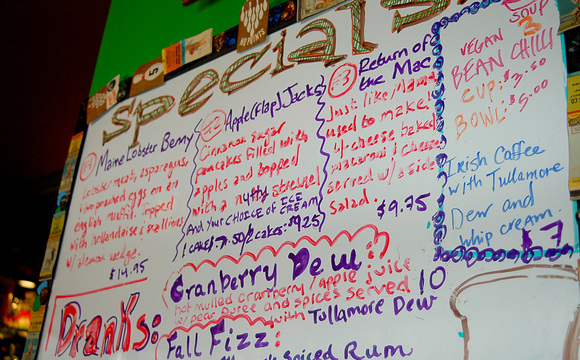 Specials
#1 Maine Lobster Benny
Lobster meat, asparagus,
+ poached eggs on an
english muffin. Topped
with hollandaise + scallions
w/ a lemon wedge.
$14.95
#2 Apple(Flap)Jacks
Cinnamon sugar
pancakes filled with
apples and topped
with a nutty streusel
AND YOUR CHOICE OF ICE CREAM
1 CAKE: $7.50/2 cakes: $9.25
#3 Return of
the Mac
Just like Mama
used to make!
4-cheese baked
macaroni + cheese
served w/ a side
Salad.
$9.75
SOUP
VEGAN
BEAN CHILI
CUP: $3.50
BOWL: $5.00
Irish Coffee
with Tullamore
Dew and
whip cream.
$7
Cranberry Dew:
hot mulled cranberry/apple juice
w/ pear puree and spices served
with Tullamore Dew
10
Dranks:
Fall Fizz:
Spiced Rum